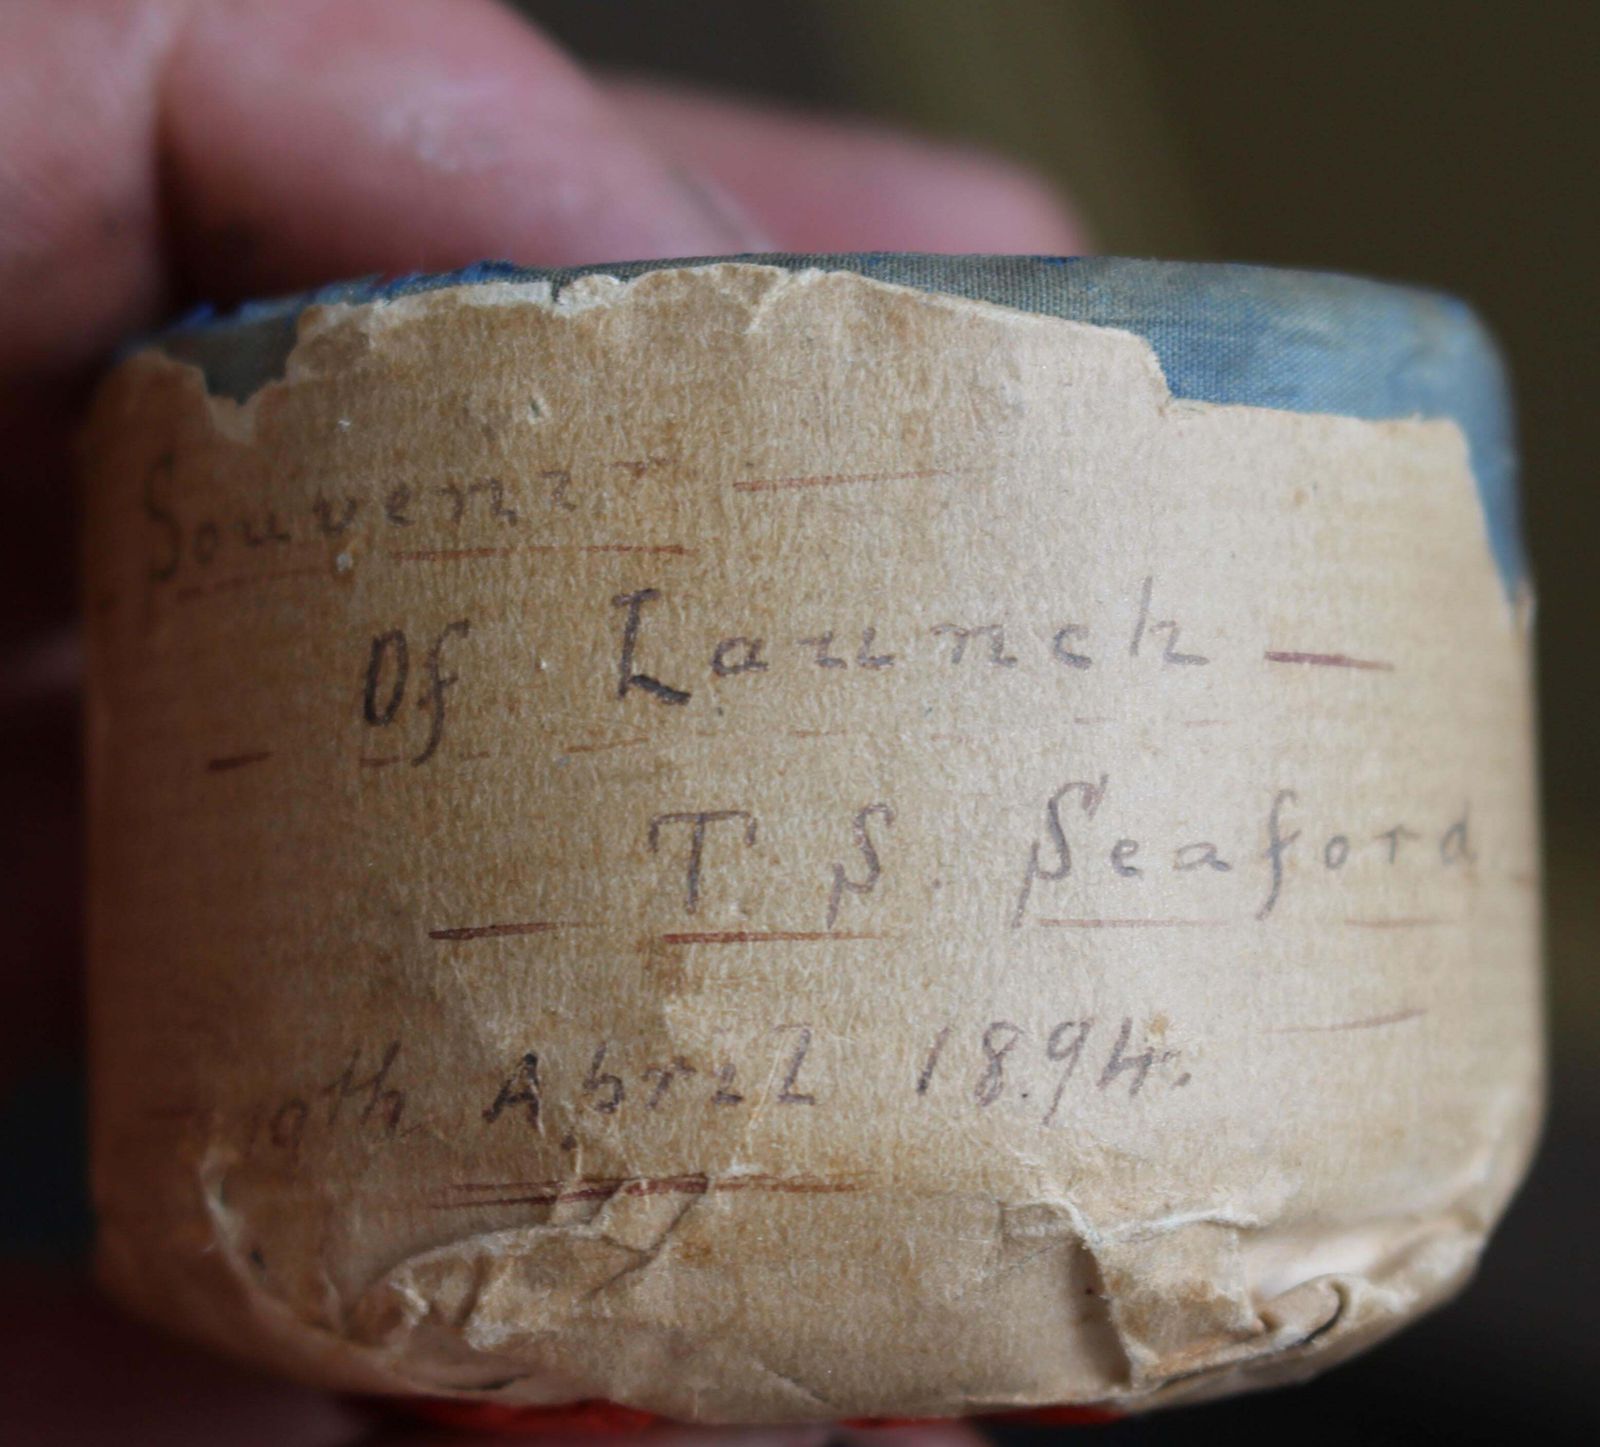 Souvenir —
— Of Launch —
— T. S. Seaford
19th April 1894.